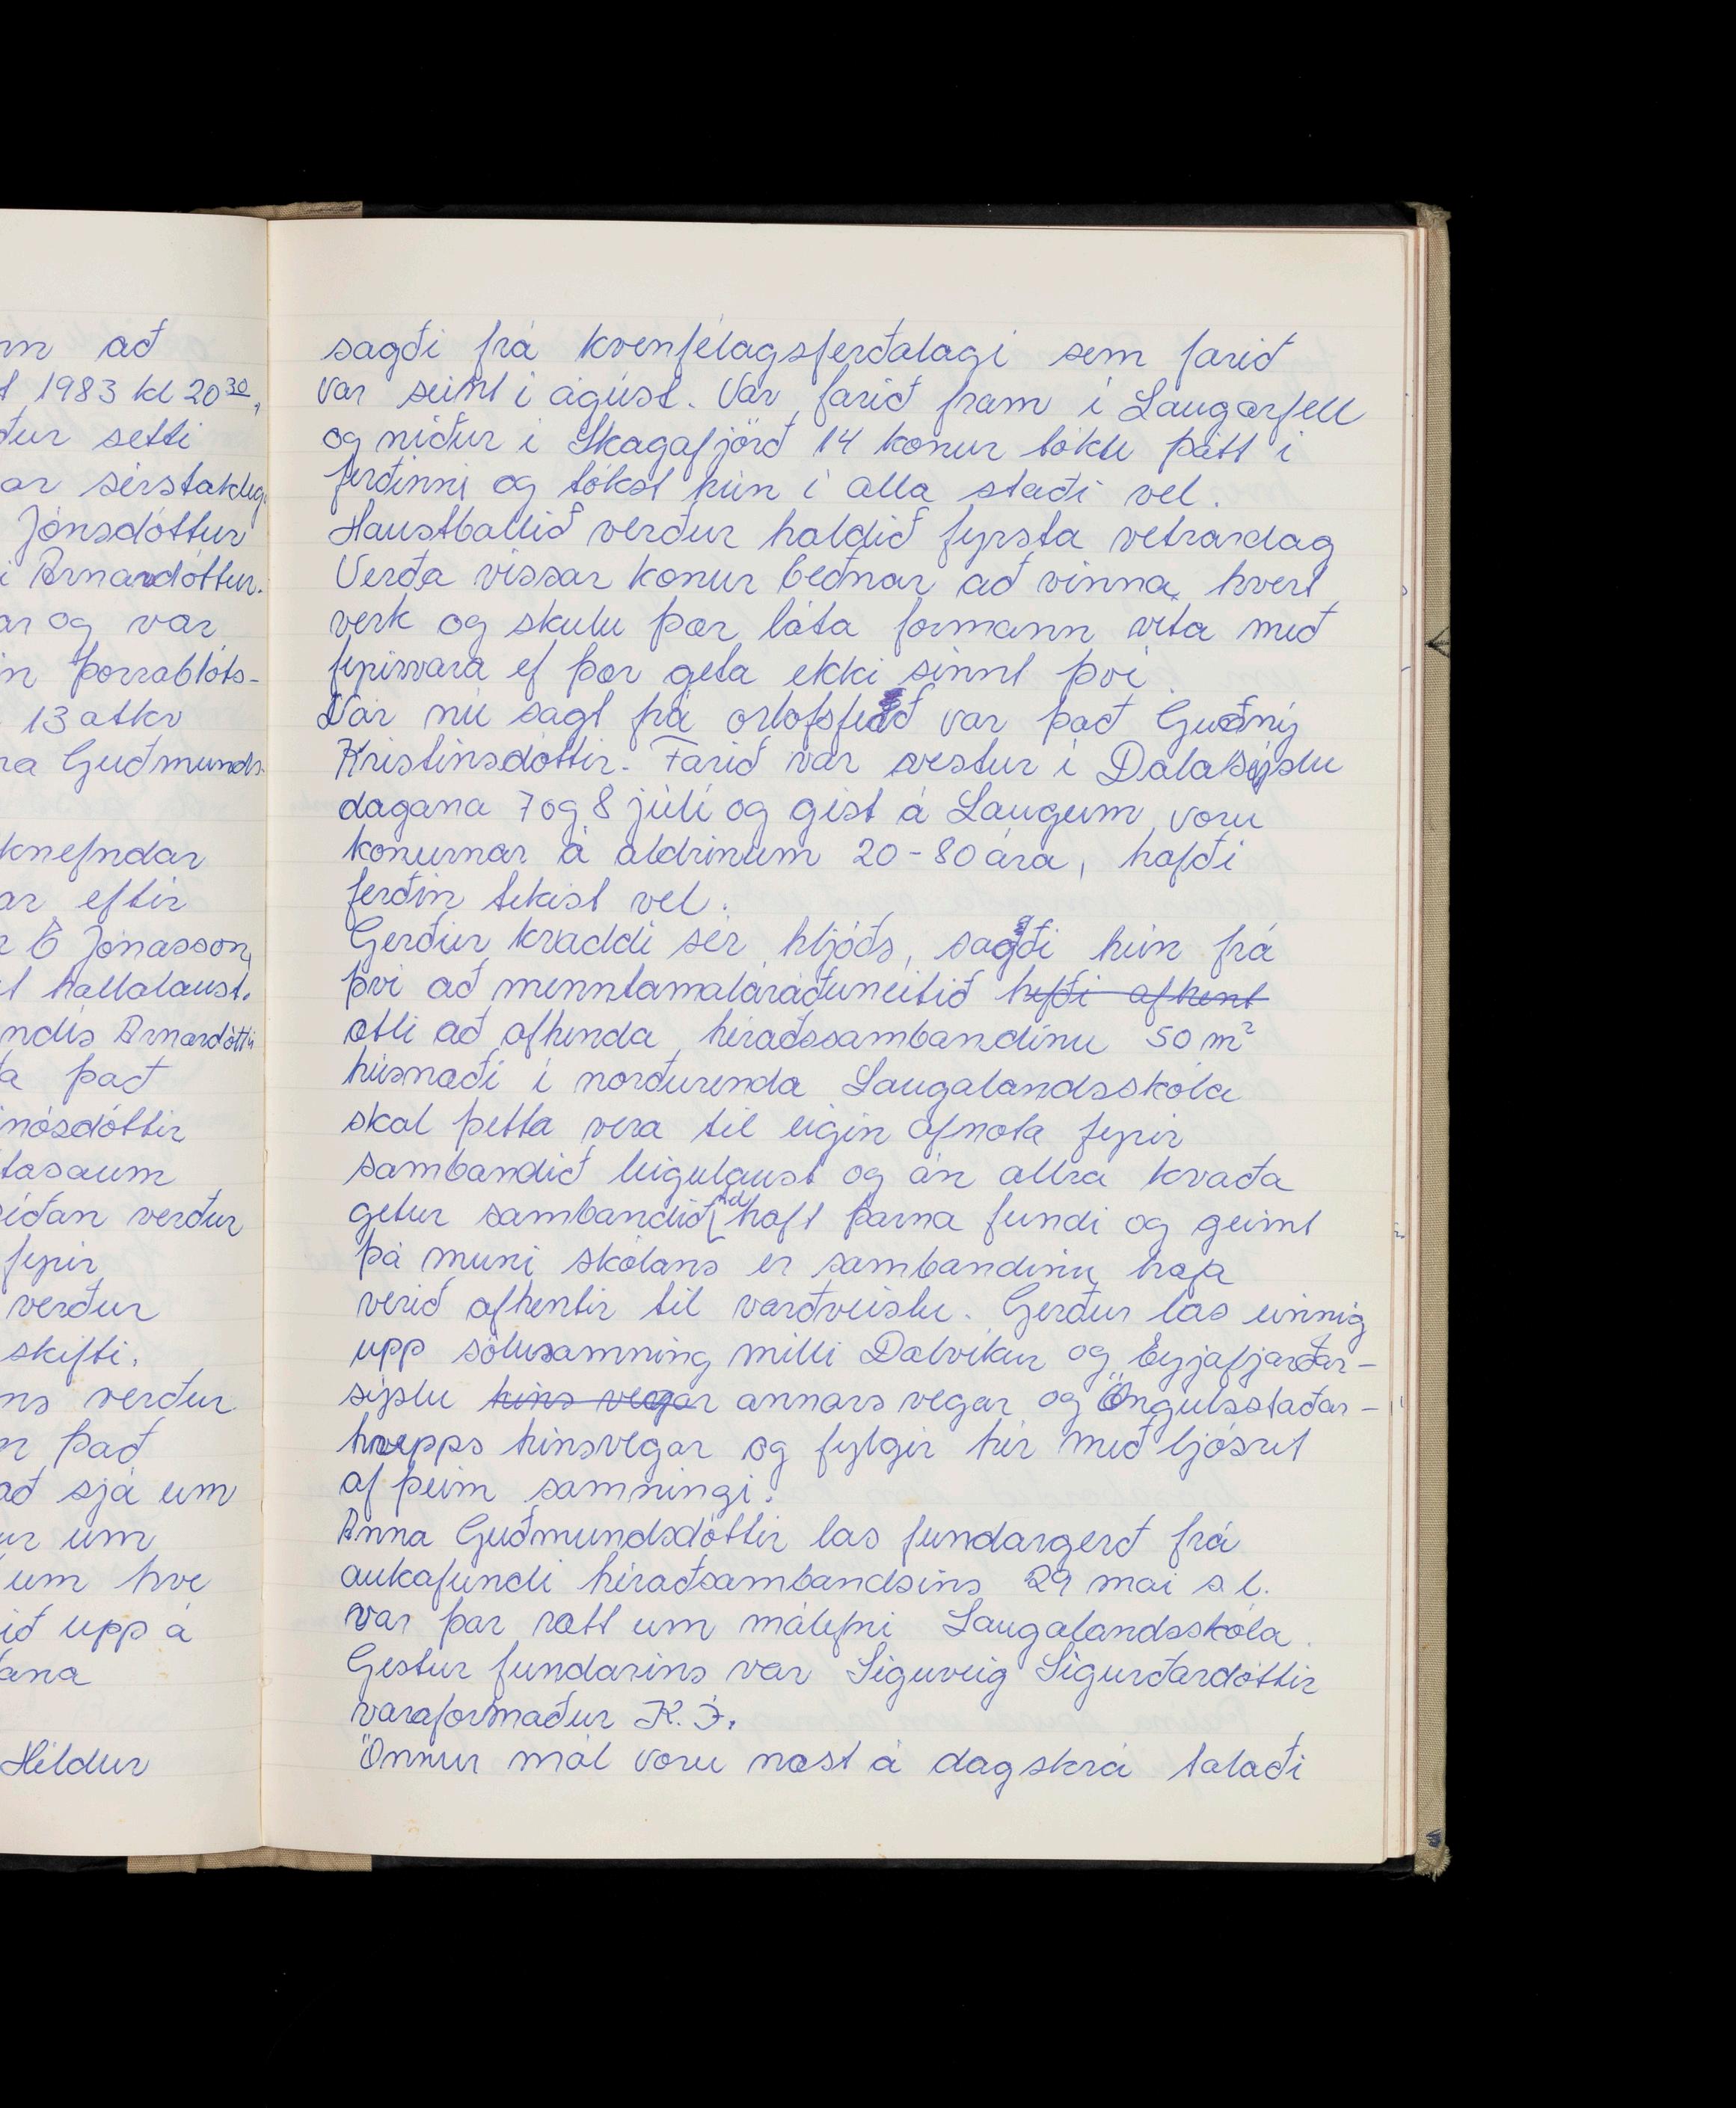 m að
1983 kl 20 30,
ður setti
ar sérstakleg
Jónsdóttur
i Arnardóttur.
ar og var
in þorrablóts-
13 atkv
ra Guðmunds-
knefndar
ar eftir
E Jónasson,
hallalaust.
ndís Arnardótti
a það
inósdóttir
tasaum
síðan verður
fyrir
verður
skifti.
ns verður
það
að sjá um
ur um
um hve
ið upp á
ana
Hildur
sagði frá kvenfélagsferðalagi sem farið
var seint í ágúst. Var farið fram í Laugarfell
og niður í Skagafjörð 14 konur tóku þátt í
ferðinni og tókst hún í alla staði vel.
Haustballið verður haldið fyrsta vetrardag
Verða vissar konur beðnar að vinna hvert
verk og skulu þær láta formann vita með
fyrirvara ef þær geta ekki sinnt því
Var nú sagt frá orlofsferð var það Guðný
Kristinsdóttir. Farið var vestur í Dalasýslu
dagana 7 og 8 júlí og gist á Laugum voru
konurnar á aldrinum 20-80 ára, hafði
ferðin tekist vel.
Gerður kvaddi sér hljóðs, sagði hún frá
því að menntamálaráðuneitið hefði afhent
ætli að afhenda héraðssambandinu 50 m²
húsnæði í norðurenda Laugalandsskóla
skal þetta vera til eigin afnota fyrir
sambandið leigulaust og án allra kvaða
getur sambandið haft þarna fundi og geimt
þá muni skólans er sambandinu hafa
verið afhentir til varðveislu. Gerður las einnig
upp sölusamning milli Dalvíkur og Eyjafjarðar-
sýslu hins vegar annars vegar og Öngulsstaðar-
hrepps hinsvegar og fylgir hér með ljósrit
af þeim samningi.
Anna Guðmundsdóttir las fundargerð frá
aukafundi héraðsambandsins 29 mai s.l.
var þar rætt um málefni Laugalandsskóla.
Gestur fundarins var Sigurveig Sigurðardóttir
varaformaður K.Í.
Önnur mál voru næst á dagskrá talaði